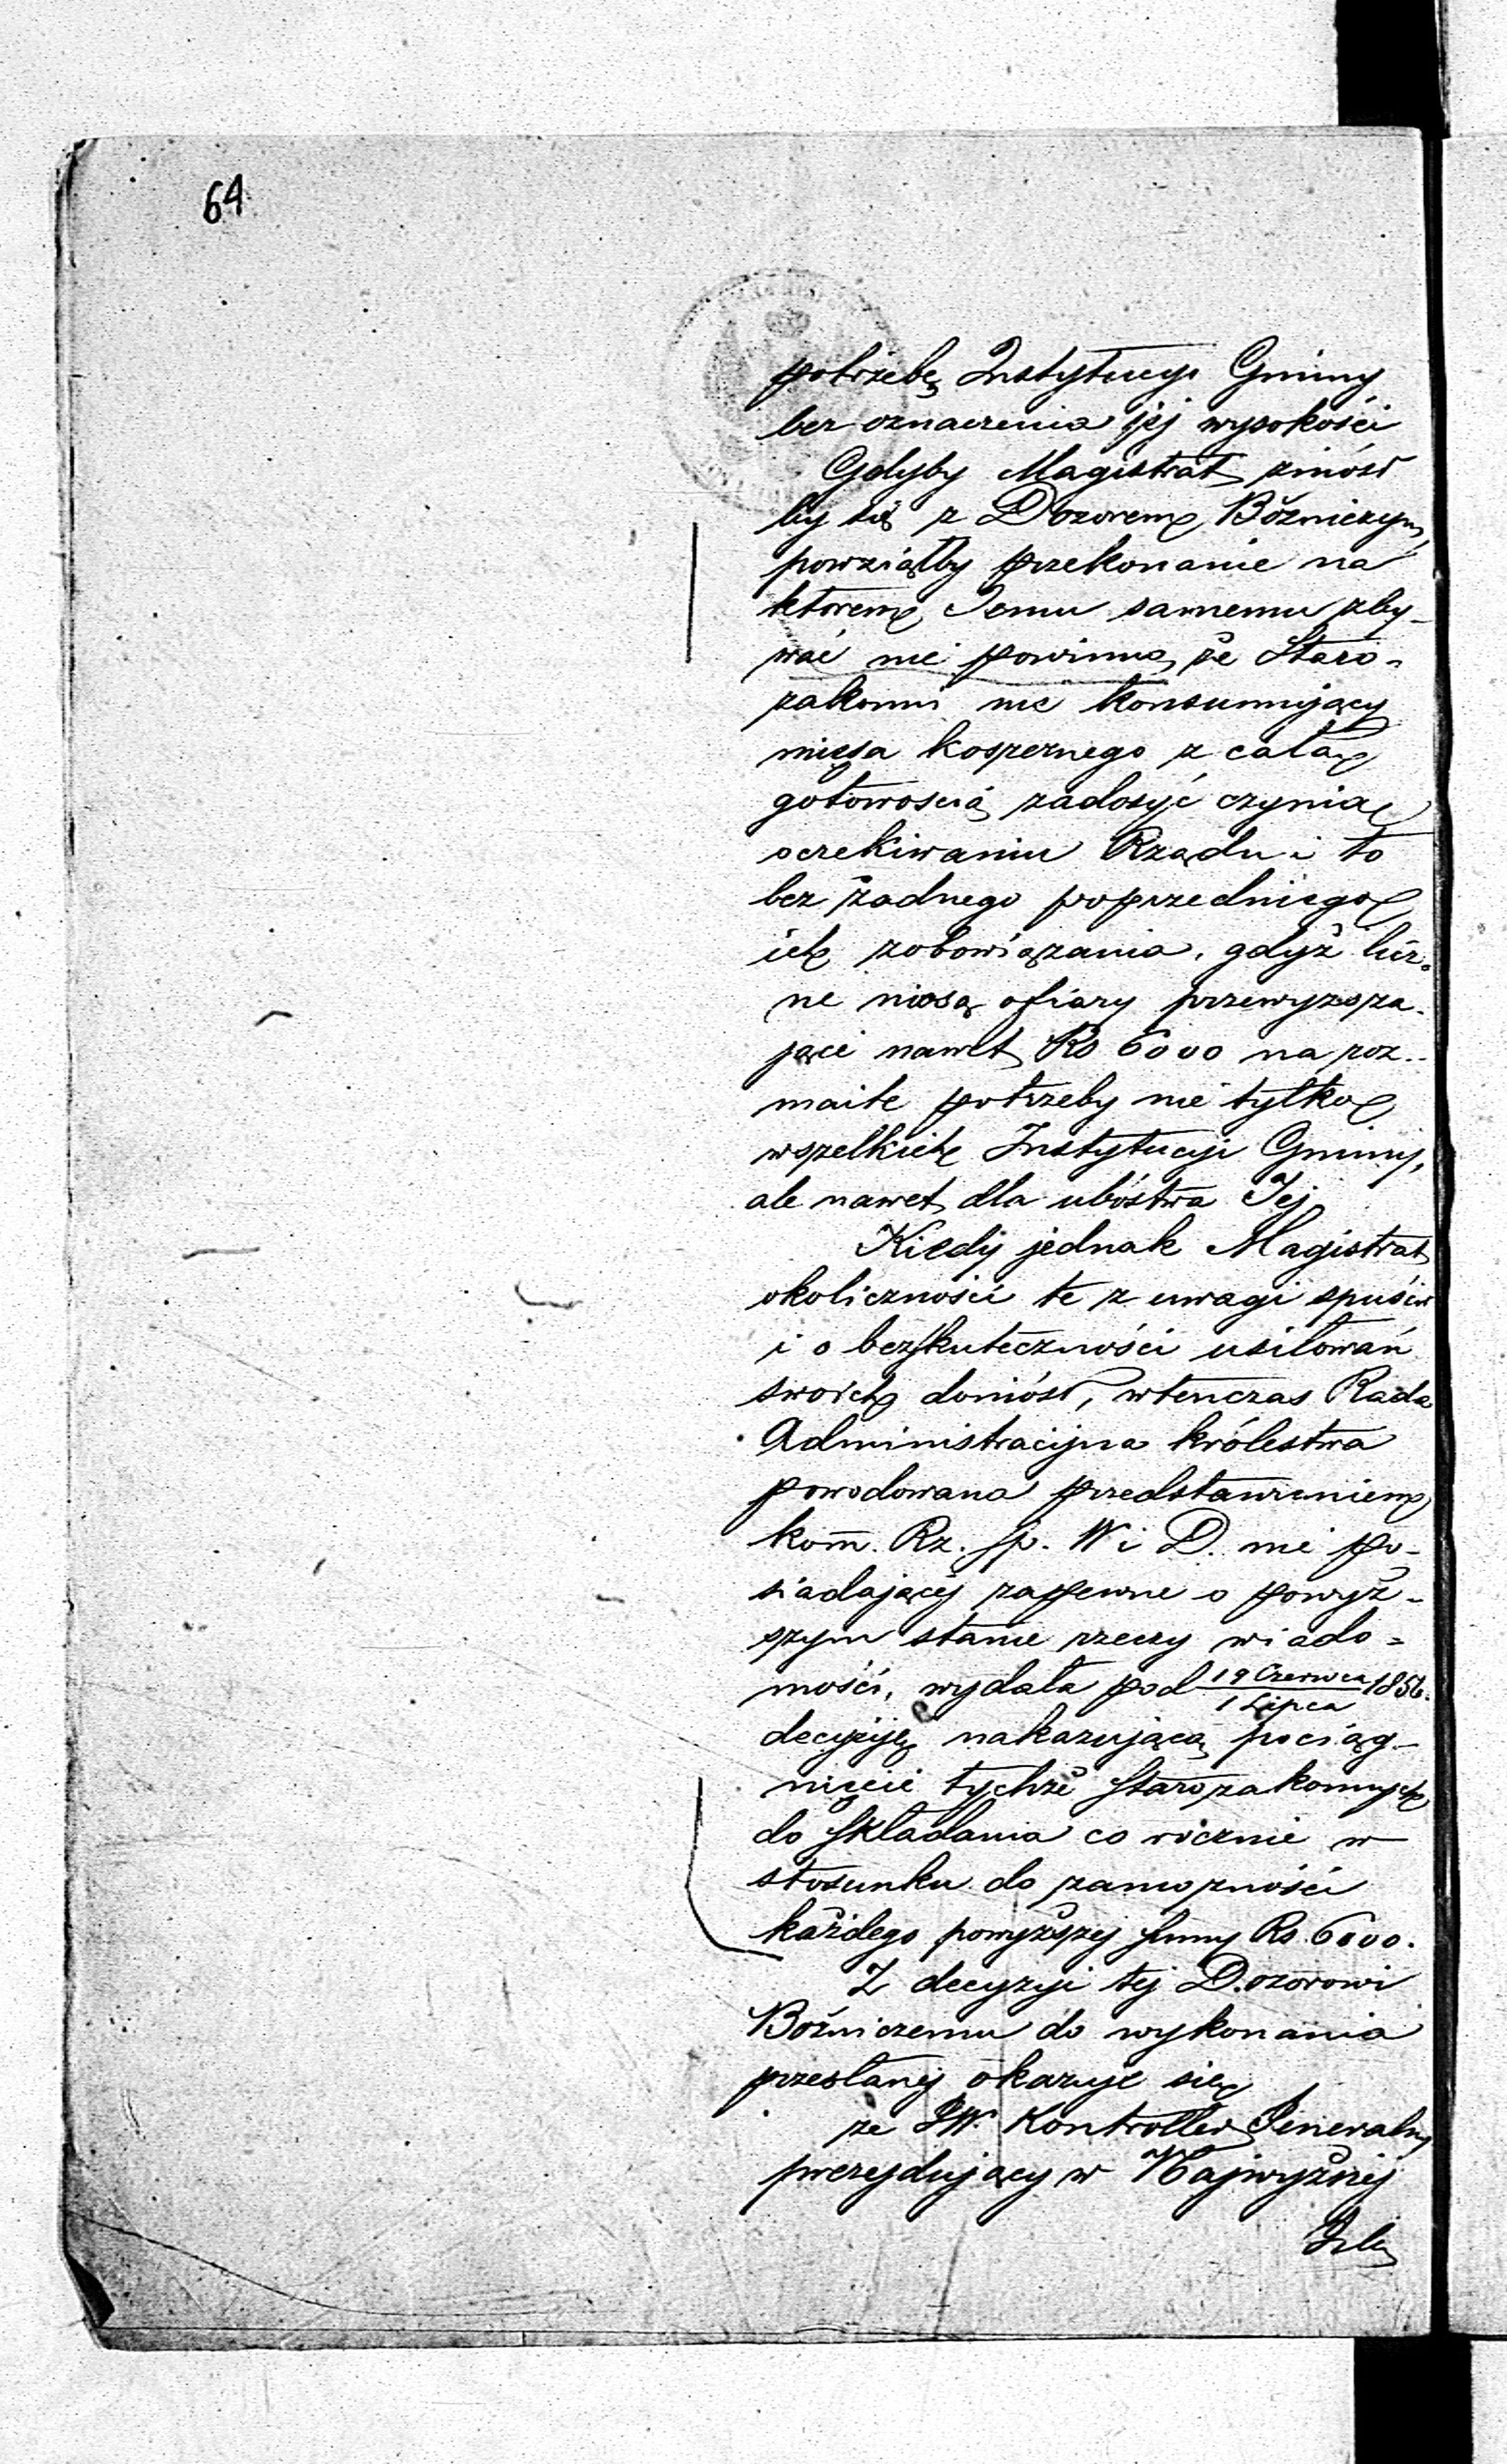 64
potrzebę Instytucyi Gminy
bez oznaczenia jéj wysokości
Gdyby Magistrat zniósł
by się z Dozorem Bóżniczym,
powziąłby przekonanie na
którem Jemu samemu zby-
wać nie powinno, że Staro-
zakonni nie konsumujący
mięsa koszernego z całą
gotowością zadosyć czynią
oczekiwaniu Rządu i to
bez żadnego poprzedniego
ich zobowiązania, gdyż licz-
ne niosą ofiary przewyższa-
jące nawet Rs 6000 na roz-
maite potrzeby nie tylko
wszelkich Instytucyi Gminy,
ale nawet dla ubóstwa Jej
Kiedy jednak Magistrat
okoliczności te z uwagi spuścił
i o bezskuteczności usiłowań
swoich doniósł, wtenczas Rada
Administracyjna królestwa
powodowana przedstawieniem
kom. Rz. Sp. W i D. nie po-
siadającej zapewne o powyż-
szym stanie rzeczy wiado-
mości, wydała pod 19 Czerwca / 1 Lipca 1856.
decyzyję nakazującą pociąg-
nięcie tychże starozakonnych
do składania co rocznie w
stosunku do zamożności
każdego powyższej summy Rs. 6000.
Z decyzyi tej Dozorowi
Bóźniczemu do wykonania
przesłanej okazuje się
że JW. Kontroller Jeneralny
prezydujący w Najwyższej
Izbie